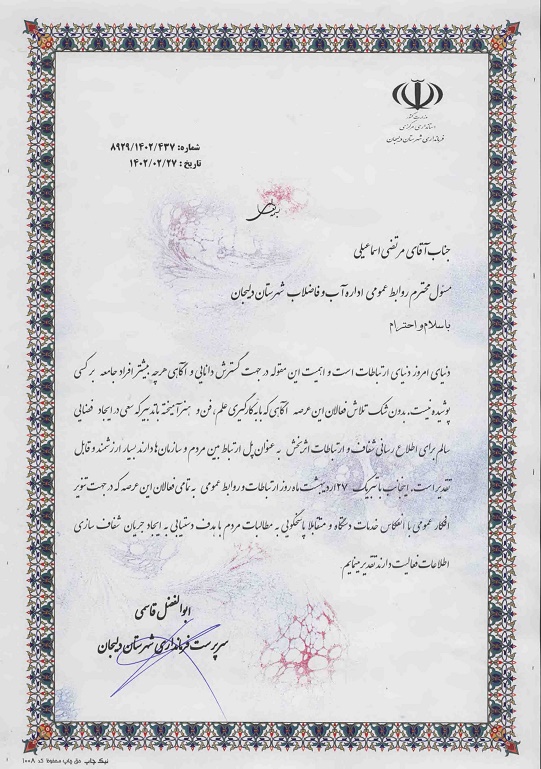 وزارت کشور
استانداری مرکزی
فرمانداری شهرستان دلیجان
شماره: ۸۹۲۹/۱۴۰۲/۴۳۷
تاریخ : ۱۴۰۲/۰۲/۲۷
جناب آقای مرتضی اسماعیلی
مسئول محترم روابط عمومی اداره آب و فاضلاب شهرستان دلیجان
باسلام و احترام
دنیای امروز دنیای ارتباطات است و اهمیت این مقوله در جهت گسترش دانایی و آگاهی هرچه بیشتر افراد جامعه بر کسی
پوشیده نیست. بدون شک تلاش فعالان این عرصه آگاهی که با به کارگیری علم، فن و هنر آمیخته با تدبیر که سعی در ایجاد فضایی
سالم برای اطلاع رسانی شفاف و ارتباطات اثربخش به عنوان پل ارتباط بین مردم و سازمان ها دارند بسیار ارزشمند و قابل
تقدیر است. اینجانب با تبریک ۲۷ اردیبهشت ماه روز ارتباطات و روابط عمومی به تمامی فعالان این عرصه که در جهت تنویر
افکار عمومی با انعکاس خدمات دستگاه و متقابلا پاسخگویی به مطالبات مردم با هدف دستیابی به ایجاد جریان شفاف سازی
اطلاعات فعالیت دارند تقدیر مینمایم.
ابوالفضل قاسمی
سرپرست فرمانداری شهرستان دلیجان
نیک چاپ حق چاپ محفوظ کد ۱۰۰۸